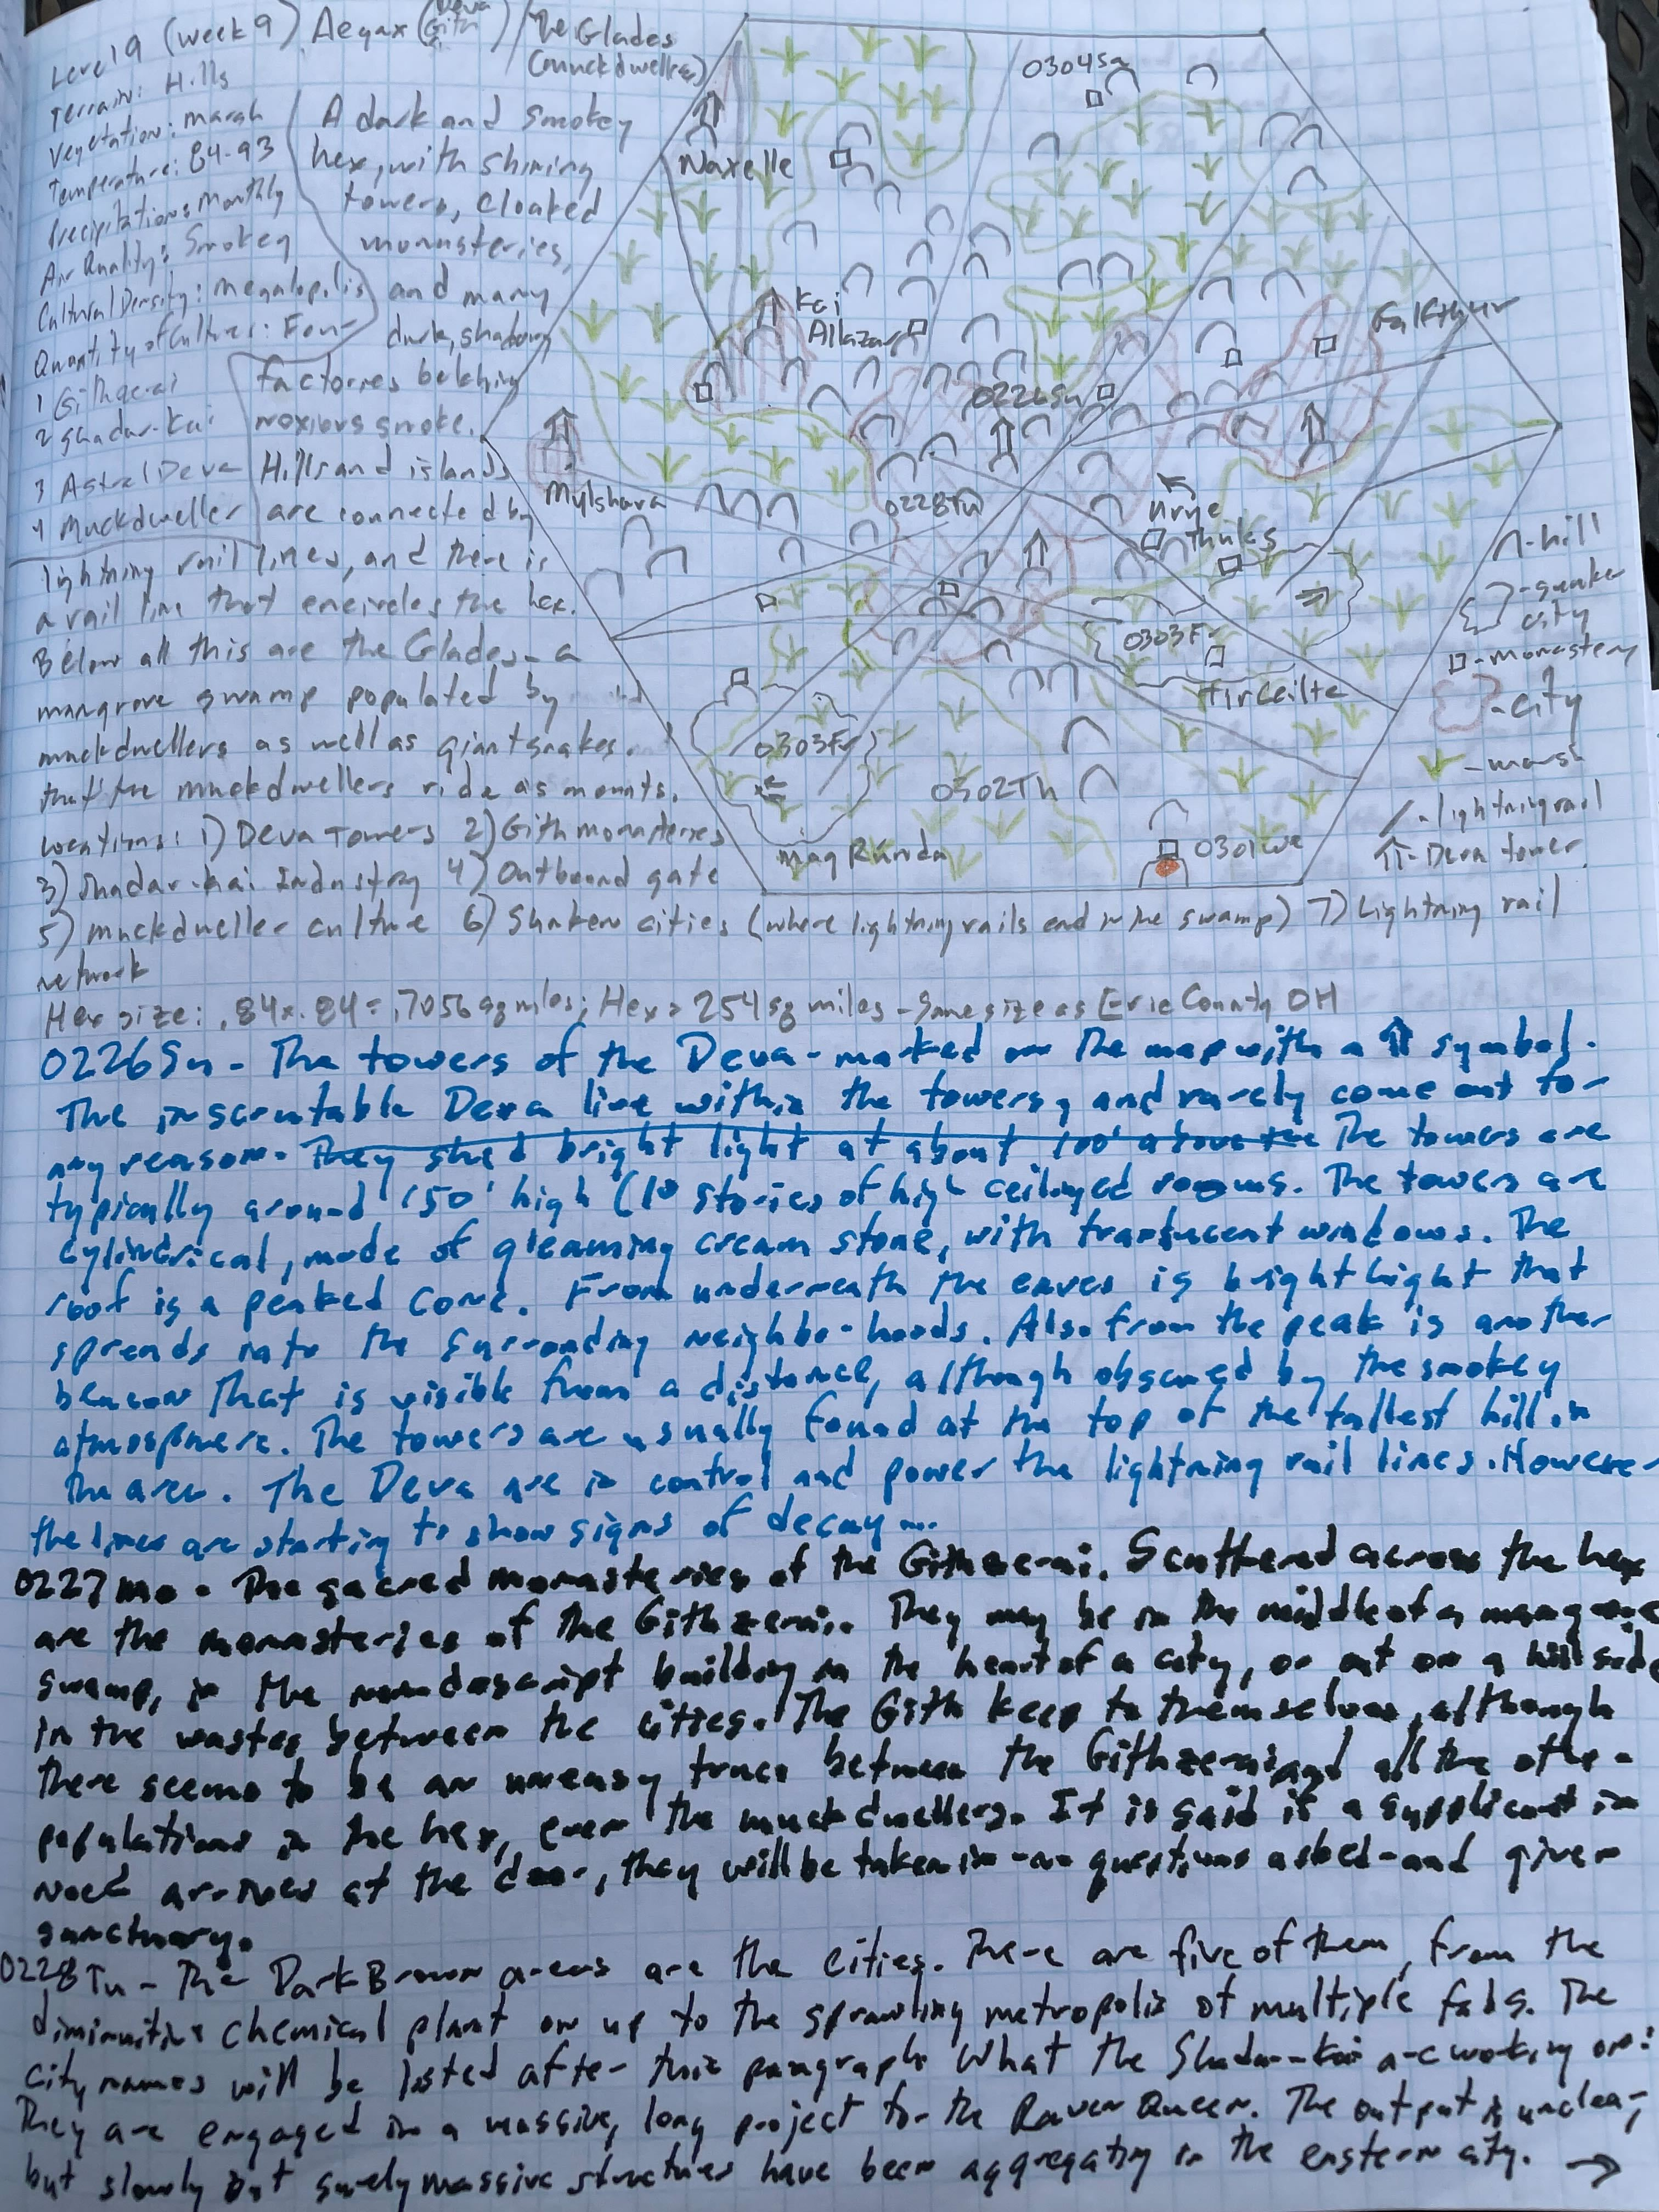 Level 9 (week 9) Aegax (Deva Gith) / The Glades (muckdwellers)
Terrain: Hills
Vegetation: marsh
Temperature: 84-93
Precipitation: Monthly
Air Quality: Smokey
Cultural Density: megalopolis
Quantity of Cultures: Four
1 Githzerai
2 Shadar-kai
3 Astral Deva
4 Muckdweller
A dark and smokey
hex, with shining
towers, cloaked
monasteries,
and many
dark, shadowy
factories belching
noxious smoke.
Hills and islands
are connected by
lightning rail lines, and there is
a rail line that encircles the hex.
Below all this are the Glades - a
mangrove swamp populated by
muckdwellers as well as giant snakes.
that the muckdwellers ride as mounts.
Locations: 1) Deva Towers 2) Gith monasteries
3) Shadar-kai Industry 4) Outbound gate
5) muckdweller culture 6) Sunken cities (where lightning rails end in the swamp) 7) Lightning rail
network
Hex size: .84x.84 = .7056 sq miles; Hex = 254 sq miles - Same size as Erie County OH
0304Sa
Naxelle
Kai
Allazar
Falkthur
0226Su
Mylshara
0228Tu
Urye
Thinks
0303Fr
Tirceilte
0303Fr
0302Th
Mag Runda
0301We
∩ - hill
- sunken
city
□ - monastery
- city
- marsh
/ - lightning rail
⇑ - Deva tower
0226Su - The towers of the Deva - marked on the map with a ⇑ symbol.
The inscrutable Deva live within the towers, and rarely come out for
any reason. They shed bright light at about 100' above the The towers are
typically around 150' high (10 stories of high ceilinged rooms. The towers are
cylindrical, made of gleaming cream stone, with translucent windows. The
roof is a peaked cone. From underneath the eaves is bright light that
spreads into the surrounding neighborhoods. Also from the peak is another
beacon that is visible from a distance, although obscured by the smokey
atmosphere. The towers are usually found at the top of the tallest hill in
the area. The Deva are in control and power the lightning rail lines. However
the lines are starting to show signs of decay...
0227Mo - The sacred monasteries of the Githzerai. Scattered across the hex
are the monasteries of the Githzerai. They may be in the middle of a mangrove
swamp, in the nondescript building in the heart of a city, or out on a hillside
in the wastes between the cities. The Gith keep to themselves, although
there seems to be an uneasy truce between the Githzerai and all the other
populations in the hex, even the muckdwellers. It is said if a supplicant in
need arrives at the door, they will be taken in - no questions asked - and given
sanctuary.
0228Tu - The Dark Brown areas are the cities. There are five of them, from the
diminutive chemical plant on up to the sprawling metropolis of multiple fabs. The
city names will be listed after this paragraph. What the Shadar-kai are working on:
They are engaged in a massive, long project for the Raven Queen. The output is unclear,
but slowly but surely massive structures have been aggregating in the eastern city. →